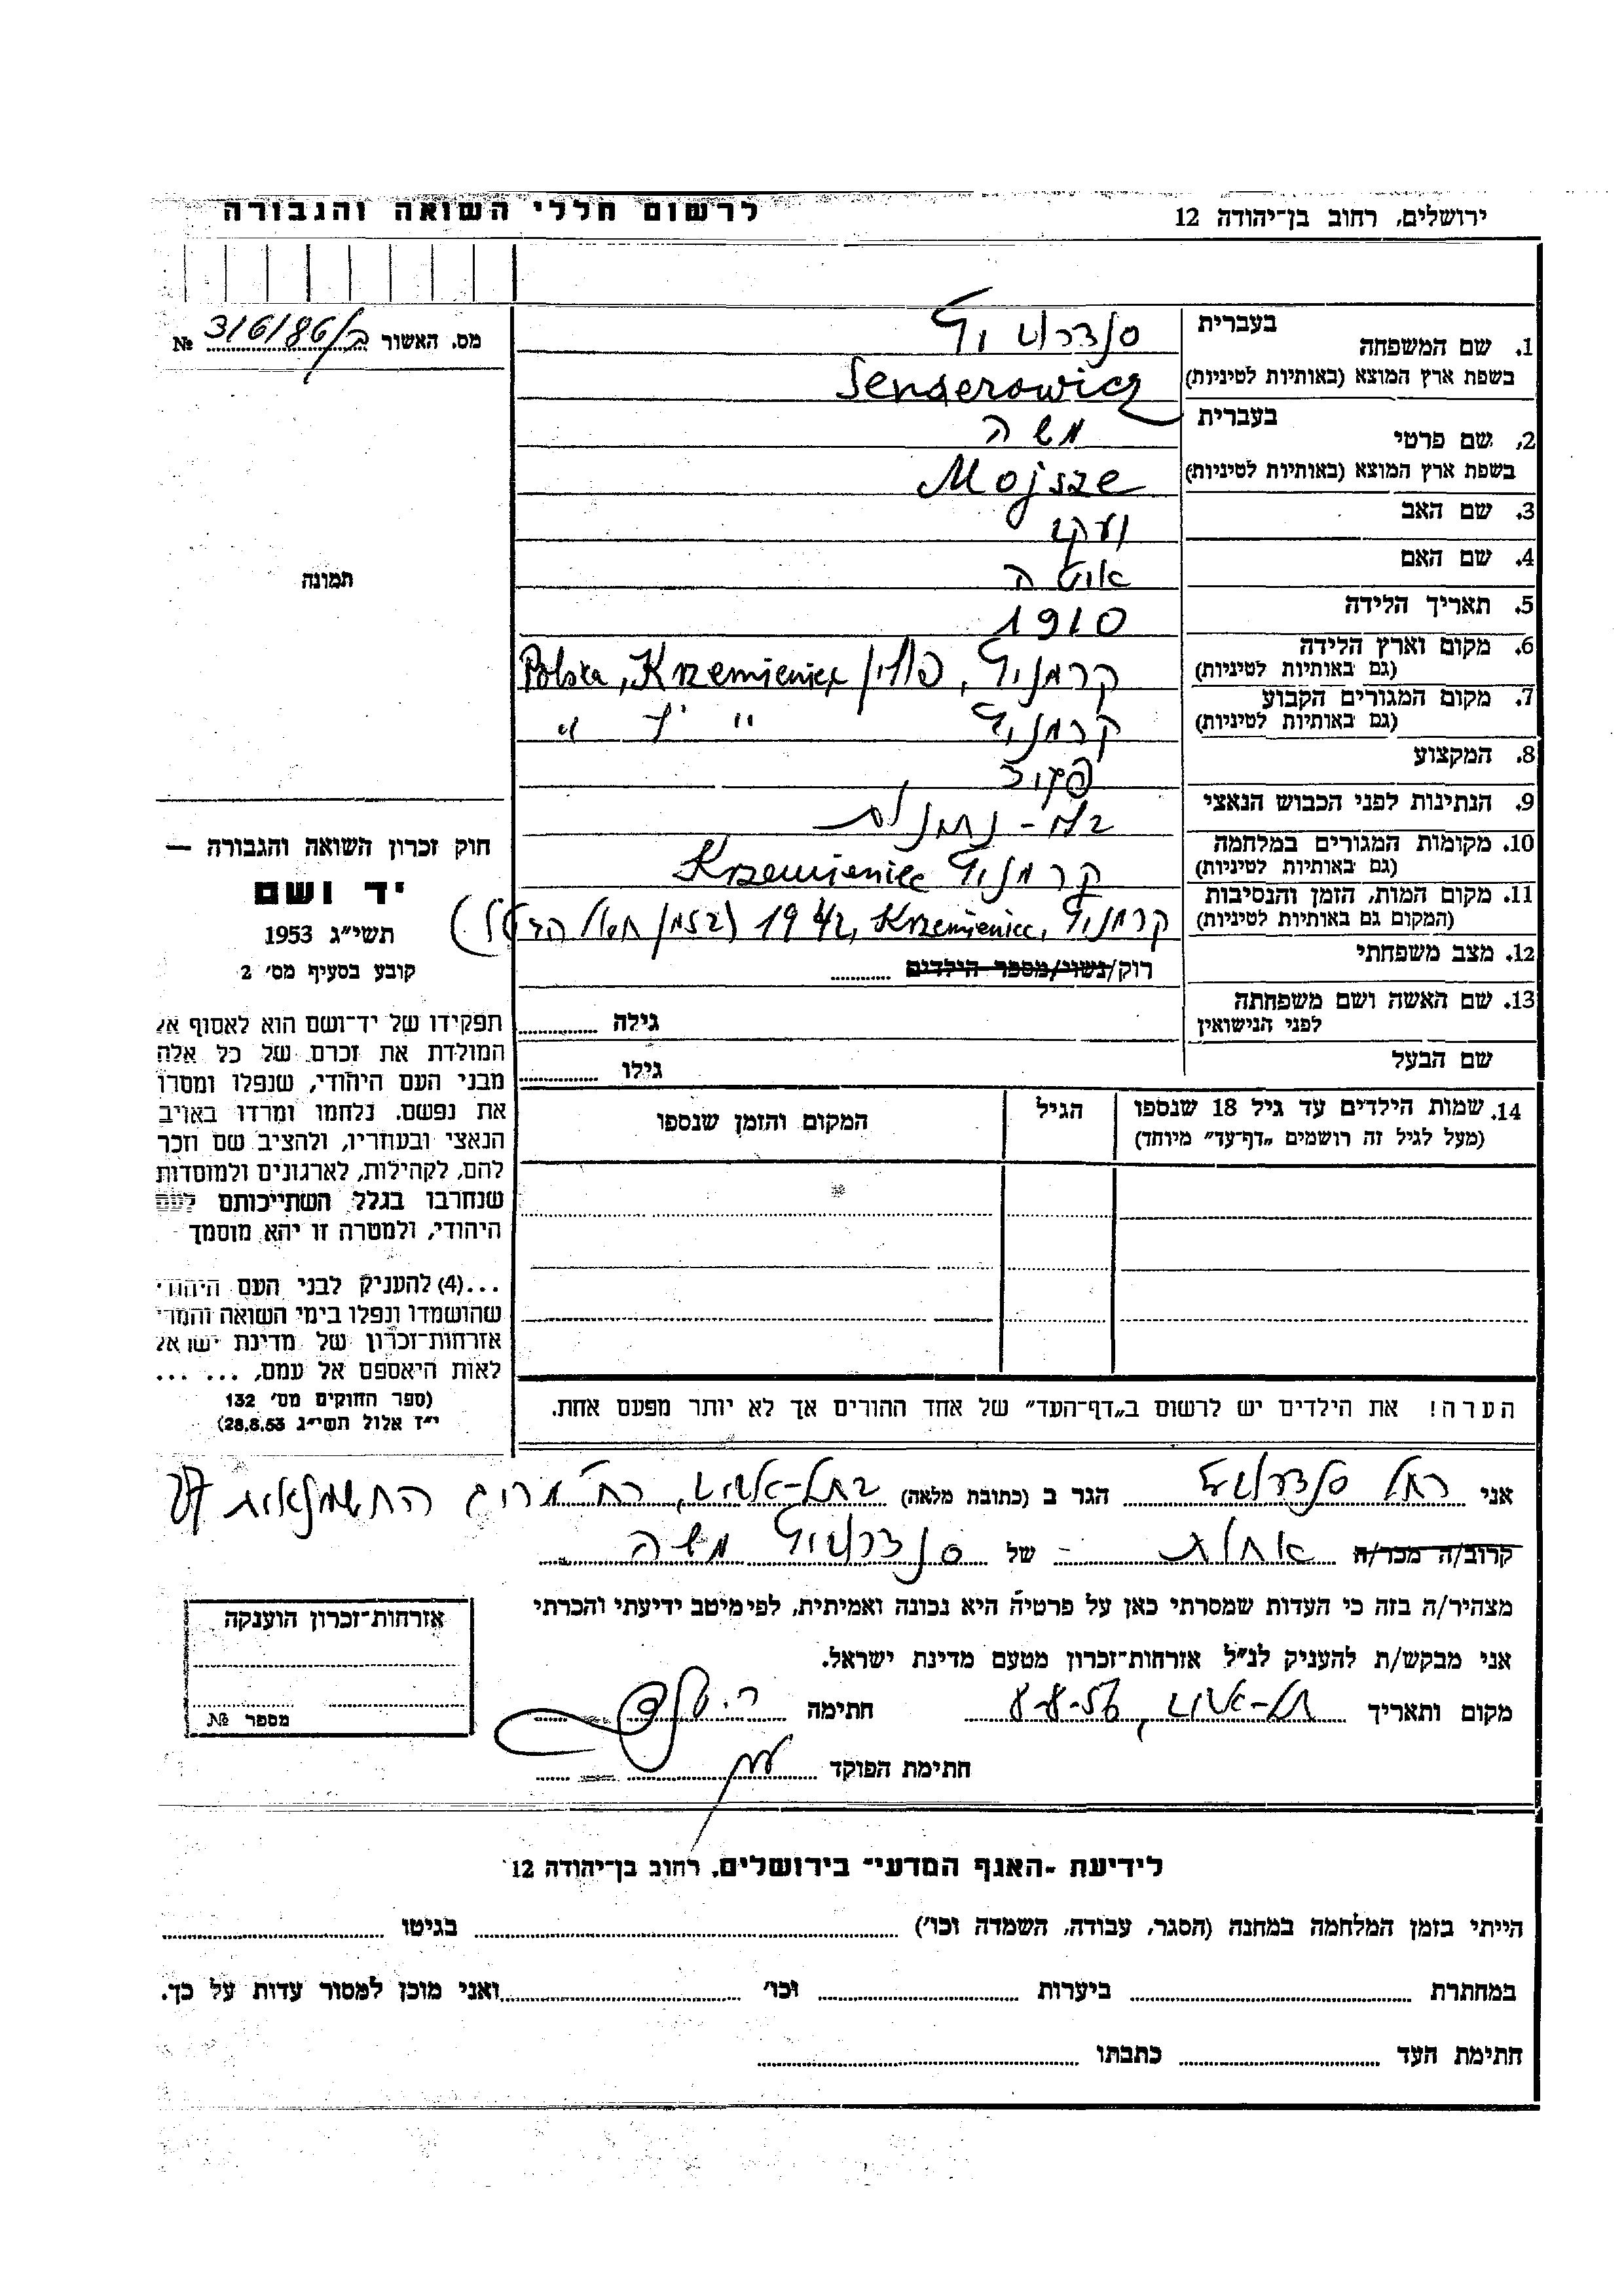 לרשום חללי השואה והגבורה
ירושלים, רחוב בן־יהודה 12
מס. האשור ב/316/86 №
1. שם המשפחה
בעברית
סנדרוביץ
בשפת ארץ המוצא (באותיות לטיניות)
Senderowicz
2. שם פרטי
בעברית
משה
בשפת ארץ המוצא (באותיות לטיניות)
Mojsze
3. שם האב
יעקב
4. שם האם
5. תאריך הלידה
1910
6. מקום וארץ הלידה
(גם באותיות לטיניות)
קרמניץ, פולין Polska, Krzemieniec
7. מקום המגורים הקבוע
(גם באותיות לטיניות)
קרמניץ " "
8. המקצוע
פקיד
9. הנתינות לפני הכבוש הנאצי
10. מקומות המגורים במלחמה
(גם באותיות לטיניות)
קרמניץ Krzemieniec
11. מקום המות, הזמן והנסיבות
(המקום גם באותיות לטיניות)
קרמניץ, Krzemieniec, 1942 (בזמן חסול הגטו)
12. מצב משפחתי
רוק/נשוי/מספר הילדים
13. שם האשה ושם משפחתה
לפני הנישואין
גילה
שם הבעל
גילו
14. שמות הילדים עד גיל 18 שנספו
(מעל לגיל זה רושמים „דף־עד" מיוחד)
הגיל
המקום והזמן שנספו
הערה! את הילדים יש לרשום ב„דף־העד" של אחד ההורים אך לא יותר מפעם אחת.
תמונה
חוק זכרון השואה והגבורה —
יד ושם
תשי"ג 1953
קובע בסעיף מס' 2
תפקידו של יד־ושם הוא לאסוף אל
המולדת את זכרם של כל אלה
מבני העם היהודי, שנפלו ומסרו
את נפשם. נלחמו ומרדו באויב
הנאצי ובעוזריו, ולהציב שם וזכר
להם, לקהילות, לארגונים ולמוסדות
שנחרבו בגלל השתייכותם לעם
היהודי, ולמטרה זו יהא מוסמך
...(4) להעניק לבני העם היהודי
שהושמדו ונפלו בימי השואה והמרי
אזרחות־זכרון של מדינת ישראל
לאות היאספם אל עמם, ... ...
(ספר החוקים מס' 132
י"ז אלול תשי"ג 28.8.53)
אני רחל סנדרוביץ הגר ב (כתובת מלאה) בתל-אביב, רח' החשמונאית 27
קרוב/ה מכר/ה אחות של סנדרוביץ משה
מצהיר/ה בזה כי העדות שמסרתי כאן על פרטיה היא נכונה ואמיתית, לפי מיטב ידיעתי והכרתי
אני מבקש/ת להעניק לנ"ל אזרחות־זכרון מטעם מדינת ישראל.
מקום ותאריך תל-אביב, 8-8-56 חתימה
חתימת הפוקד
אזרחות־זכרון הוענקה
מספר №
לידיעת ־האגף המדעי־ בירושלים. רחוב בן־יהודה 12
הייתי בזמן המלחמה במחנה (הסגר, עבודה, השמדה וכו') בגיטו
במחתרת ביערות וכו' ואני מוכן למסור עדות על כך.
חתימת העד כתבתו